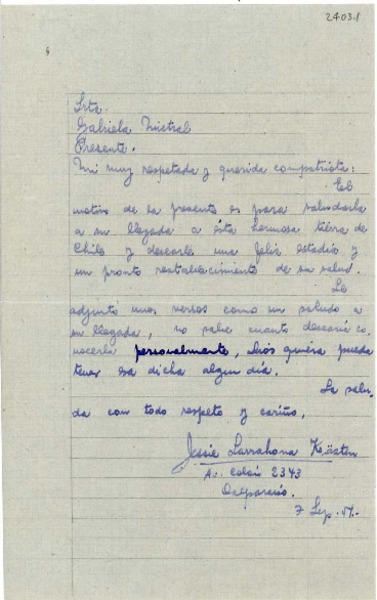 24031
Srta.
Gabriela Mistral
Presente.
Mi muy respetada y querida compatriota:
El
motivo de la presente es para saludarla
a su llegada a ésta hermosa tierra de
Chile y desearle una feliz estadía y
un pronto restablecimiento de su salud.
Le
adjunto unos versos como un saludo a
su llegada, no sabe cuanto desearía co
nocerla personalmente, Diós quiera pueda
tener esa dicha algun día.
La salu-
da con todo respeto y cariño,
Jessie Larrahona Kästen
Av. Colón 2343
Valparaíso.
7 Sep. 54.-